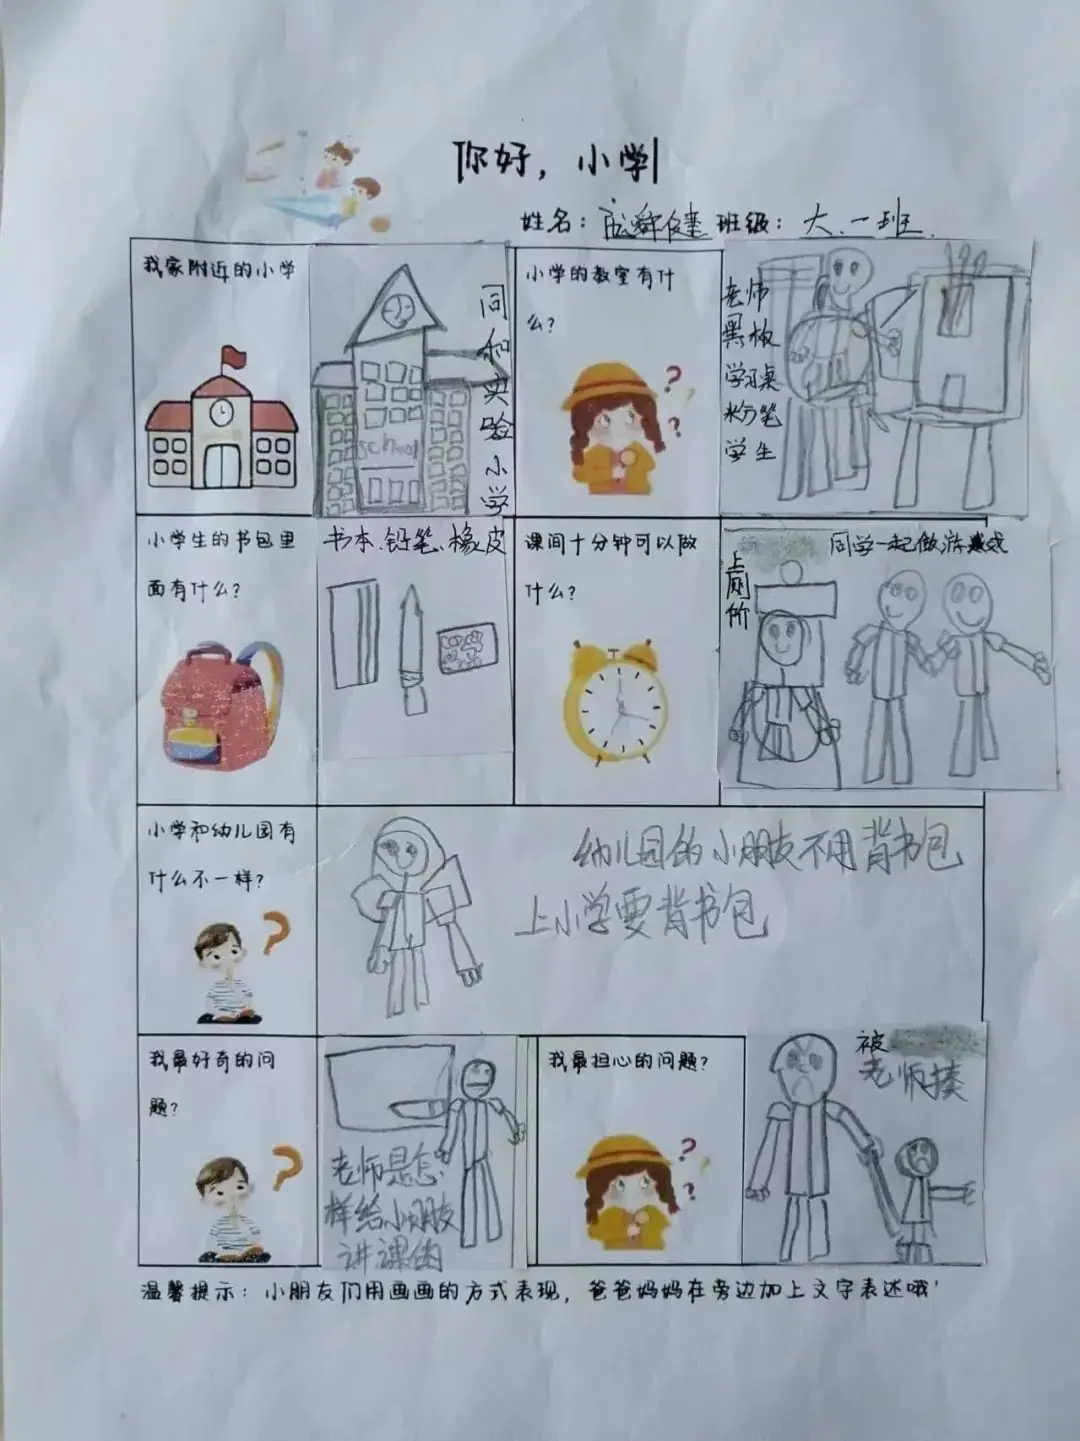 你好，小学
姓名： 班级：大一班
我家附近的小学
同和实验小学
school
小学的教室有什
么？
老师
黑板
学习桌
粉笔
学生
小学生的书包里
面有什么？
书本、铅笔、橡皮
课间十分钟可以做
什么？
上厕所
同学一起做游戏
小学和幼儿园有
什么不一样？
幼儿园的小朋友不用背书包
上小学要背书包
我最好奇的问
题？
老师是怎
样给小朋友
讲课的
我最担心的问题？
被
老师揍
温馨提示：小朋友们用画画的方式表现，爸爸妈妈在旁边加上文字表述哦！